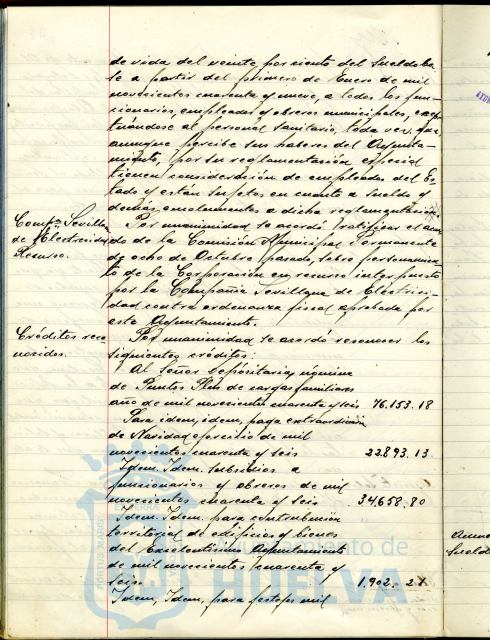 de vida del veinte por ciento del sueldo ba-
se a partir del primero de Enero de mil
novecientos cuarenta y nueve, a todos los fun-
cionarios, empleados y obreros municipales, excep-
tuándose al personal sanitario, toda vez que
aunque percibe sus haberes del Ayunta-
miento, por su reglamentación especial
tienen consideración de empleados del Es-
tado y están sujetos en cuanto a sueldo y
demás emolumentos a dicha reglamentación.
Compª Sevillana
de Electricidad
Recurso.
Por unanimidad se acordó ratificar el acuer-
do de la Comisión Municipal Permanente
de ocho de Octubre pasado, sobre personamien-
to de la Corporación en recurso interpuesto
por la Compañía Sevillana de Electrici-
dad contra ordenanza fiscal aprobada por
este Ayuntamiento.
Créditos reco-
nocidos.
Por unanimidad se acordó reconocer los
siguientes créditos:
Al Señor Depositario, nómina
de Puntos Plus de cargas familiares
año de mil novecientos cuarenta y seis 76.153.18
Para idem, idem, paga extraordinaria
de Navidad ejercicio de mil
novecientos cuarenta y seis 22.893.13
Idem. Idem. subsidios a
funcionarios y obreros de mil
novecientos cuarenta y seis 34.658.80
Idem. Idem. para contribución
territorial de edificios y bienes
del Excelentísimo Ayuntamiento
de mil novecientos cuarenta y
seis 1.902.27
Idem, Idem, para festejos mil
Ayuntamiento de
HUELVA
Aumen
sueldo